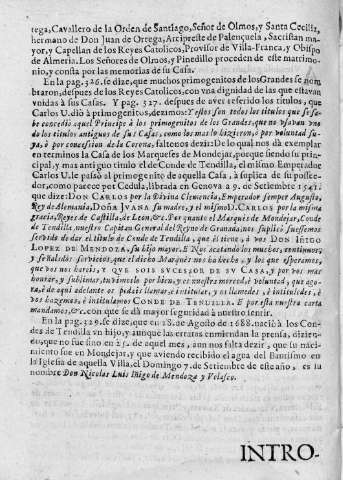 tega, Cavallero de la Orden de Santiago, Señor de Olmos, y Santa Cecilia,
hermano de Don Juan de Ortega, Arcipreste de Palençuela, Sacristan ma-
yor, y Capellan de los Reyes Catolicos, Provisor de Villa-Franca, y Obispo
de Almeria. Los Señores de Olmos, y Pinedillo proceden de este matrimo-
nio, y consta por las memorias de su Casa.
En la pag. 326. se dize, que muchos primogenitos de los Grandes se nom-
braron, despues de los Reyes Catolicos, con vna dignidad de las que estavan
vnidas à sus Casas. Y pag. 327. despues de aver referido los titulos, que
Carlos V. diò à primogenitos, dezimos: Y estos son todos los titulos que se sa-
be concediò aquel Principe à los primogenitos de los Grandes, que no vsavan vno
de los titulos antiguos de sus Casas, como los mas lo hizieron, ò por voluntad su-
ya, ò por concession de la Corona, faltonos dezir: De lo qual nos dà exemplar
en terminos la Casa de los Marqueses de Mondejar, porque siendo su prin-
cipal, y mas antiguo titulo el de Conde de Tendilla, el mismo Emperador
Carlos V. le passò al primogenito de aquella Casa, à suplica de su possee-
dor, como parece por Cedula, librada en Genova à 9. de Setiembre 1541.
que dize: DON CARLOS por la Divina Clemencia, Emperador semper Augusto,
Rey de Alemania, DOÑA JVANA su madre, y el mismo D. CARLOS por la misma
gracia, Reyes de Castilla, de Leon, &c. Por quanto el Marquès de Mondejar, Conde
de Tendilla, nuestro Capitan General del Reyno de Granada, nos suplicò fuessemos
servido de dar el titulo de Conde de Tendilla, que èl tiene, à vos DON INIGO
LOPEZ DE MENDOZA, su hijo mayor. E Nos acatando los muchos, continuos,
y señalados servicios, que el dicho Marquès nos ha hecho, y los que esperamos,
que vos nos hareis, Y QUE SOIS SVCESSOR DE SV CASA, y por vos mas
honrar, y sublimar, tuvimoslo por bien, y es nuestra merced, è voluntad, que ago-
ra, è de aqui adelante os podais llamar, è intitular, y os llamedes, è intituledes, è
vos hazemos, è instituìmos CONDE DE TENDILLA. E por esta nuestra carta
mandamos, &c. con que se dà mayor seguridad à nuestro sentir.
En la pag. 329. se dize, que en 28. de Agosto de 1688. naciò à los Con-
des de Tendilla vn hijo, y aunque las erratas enmiendan la prensa, dizien-
do, que no fue sino en 25. de aquel mes, aun nos falta dezir, que su naci-
miento fue en Mondejar, y que aviendo recibido el agua del Bautismo en
la Iglesia de aquella Villa, el Domingo 7. de Setiembre de este año, es su
nombre Don Nicolas Luis Iñigo de Mendoza y Velasco.
INTRO-